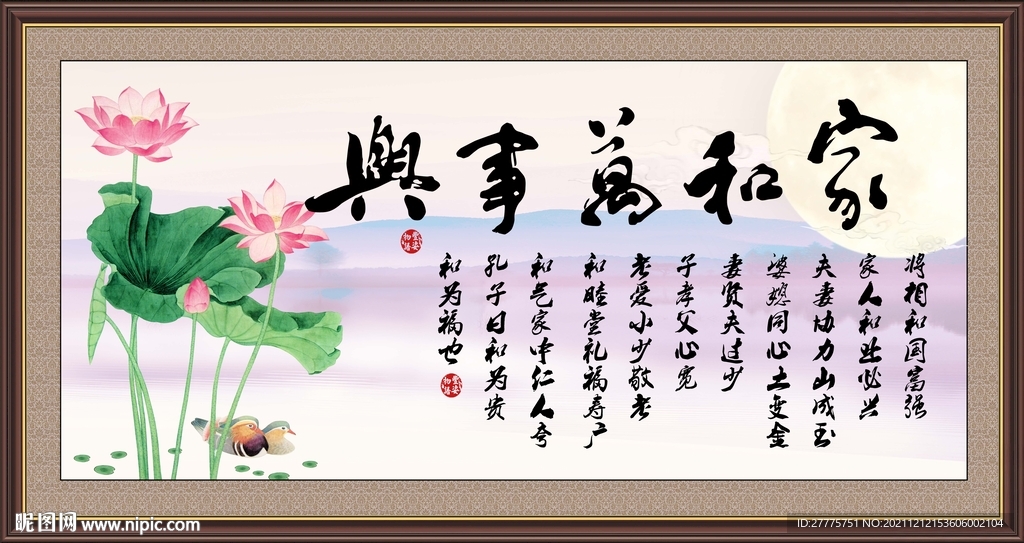 家和萬事興
将相和国富强
家人和业必兴
夫妻协力山成玉
婆媳同心土变金
妻贤夫过少
子孝父心宽
老爱小少敬老
和睦堂礼福寿广
和气家中仁人夸
孔子曰和为贵
和为福也
昵图网 www.nipic.com
ID:27775751 NO:20211212153606002104